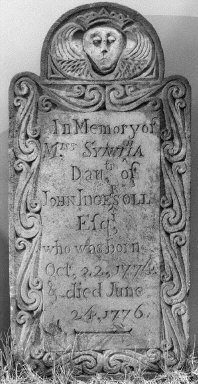 In Memory of
Mrs SYNTHA
Daur of
JOHN INGERSOLL
Esqr
who was born
Oct. 22, 1774.
& died June
24, 1776.